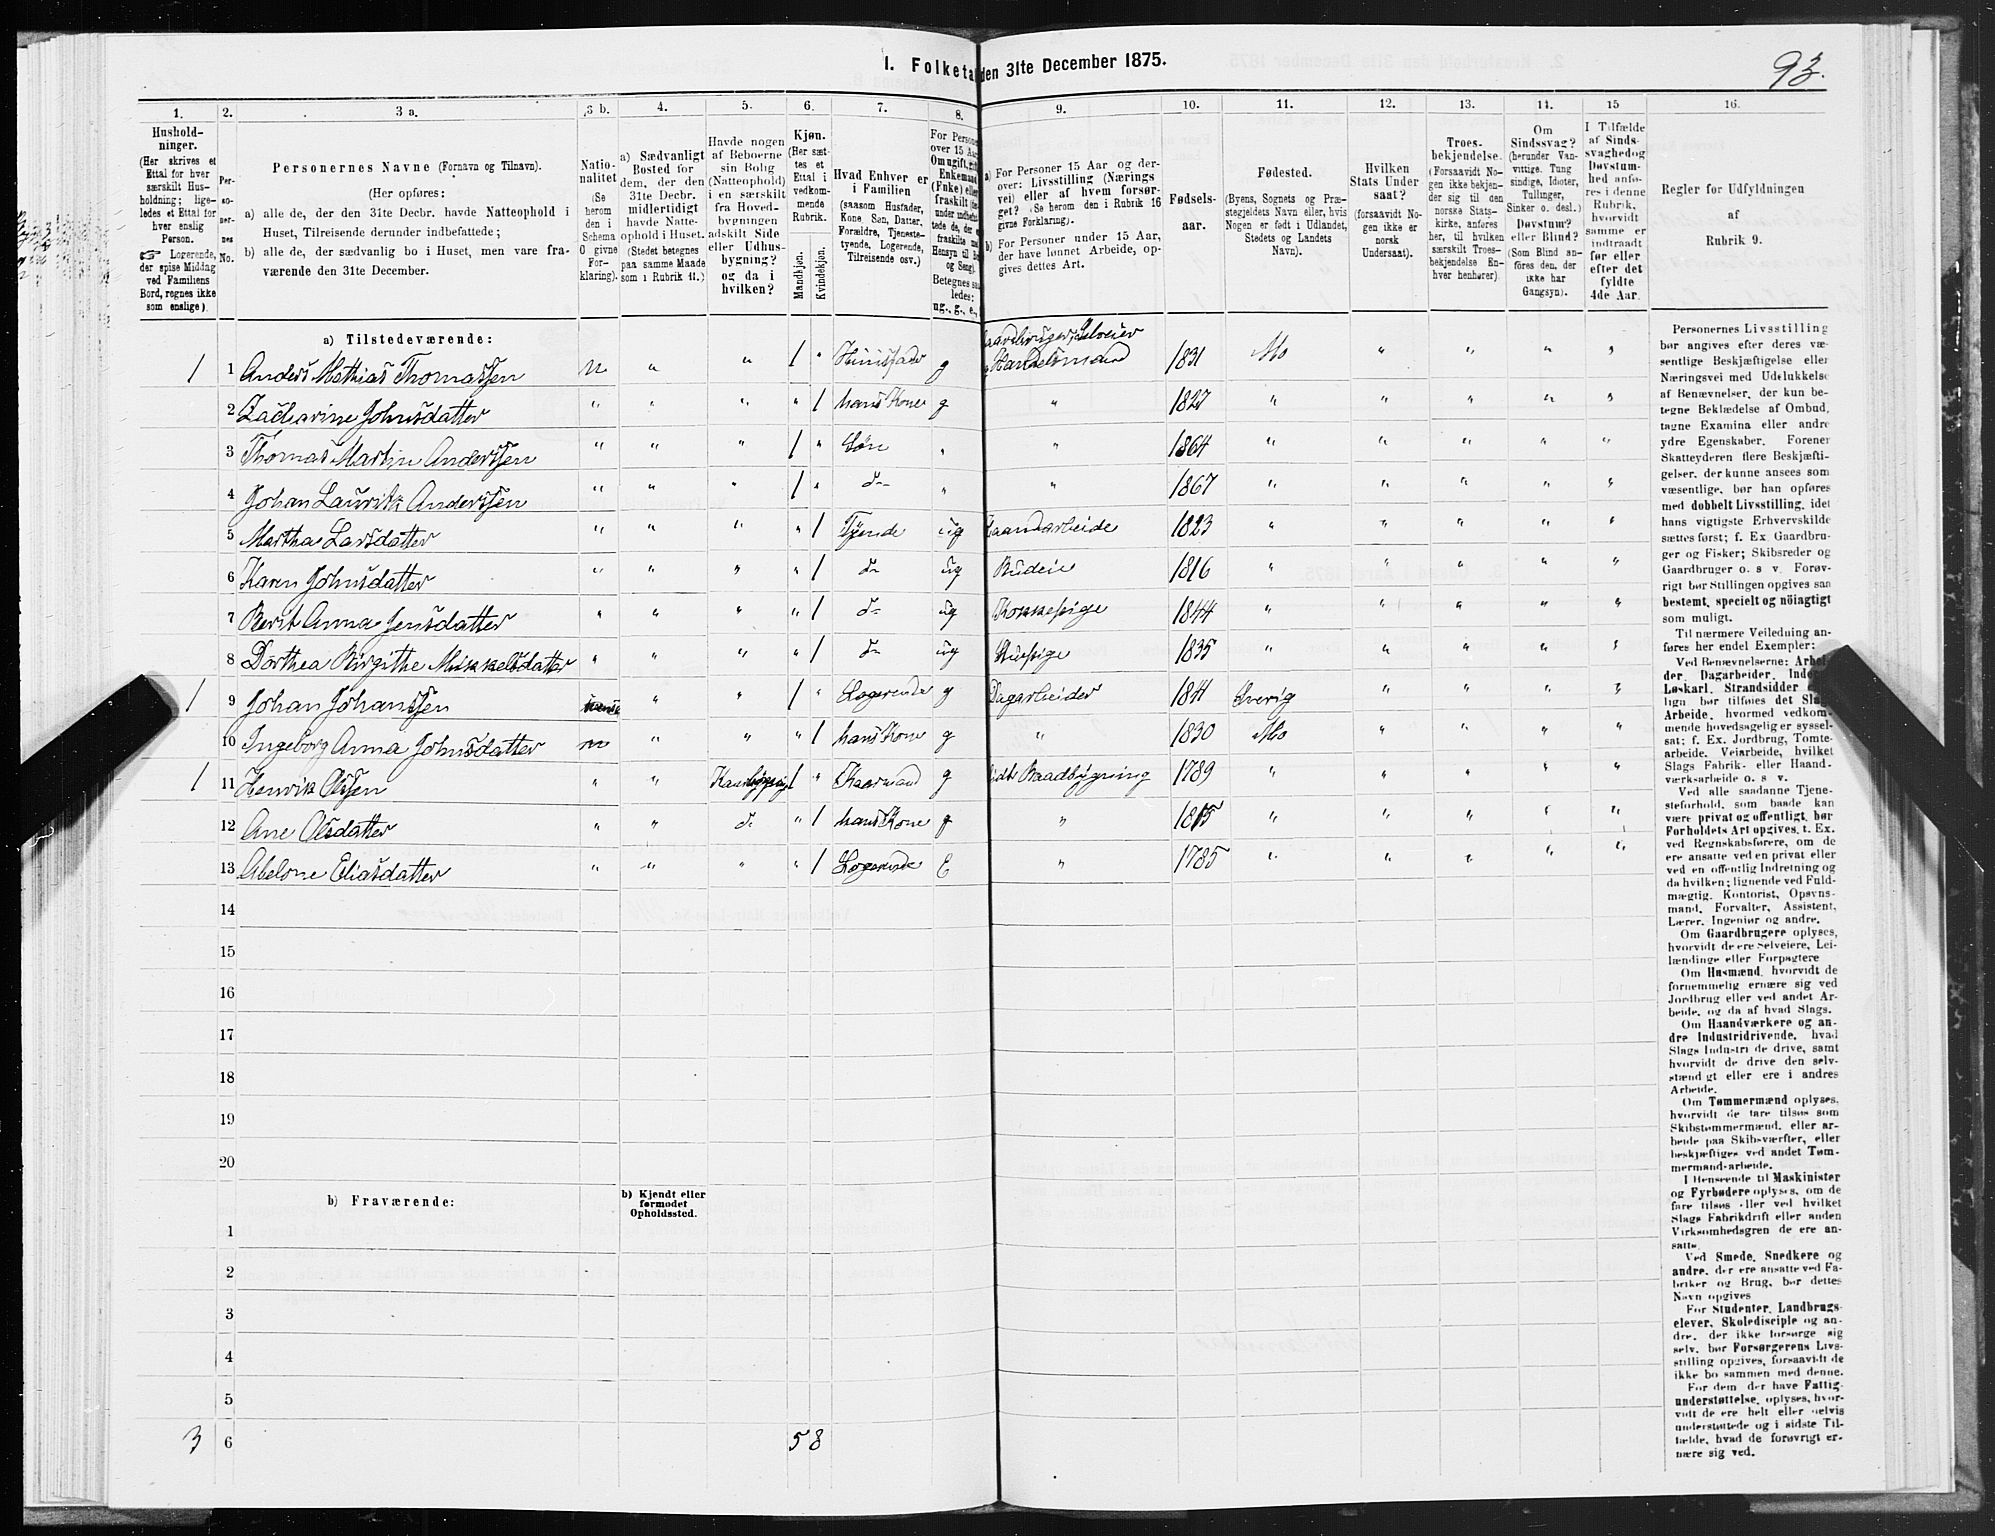 1. Folketa den 31te December 1875.
93.
1. 2. 3 a. 3 b. 4. 5. 6. 7. 8. 9. 10. 11. 12. 13. 14. 15 16.
Hushold-
ninger.
(Her skrives et
Ettal for hver
særskilt Hus-
holdning; lige-
ledes et Ettal for
hver enslig
Person.
☞ Logerende,
der spise Middag
ved Familiens
Bord, regnes ikke
som enslige).
Per-
so-
ner-
nes
No.
Personernes Navne (Fornavn og Tilnavn).
(Her opføres:
a) alle de, der den 31te Decbr. havde Natteophold i
Huset, Tilreisende derunder indbefattede;
b) alle de, der sædvanlig bo i Huset, men vare fra-
værende den 31te December.
Natio-
nalitet
(Se
herom
den i
Schema
O givne
For-
klaring).
a) Sædvanligt
Bosted for
dem, der den
31te Decbr.
midlertidigt
havde Natte-
ophold i Huset.
(Stedet betegnes
paa samme Maade
som i Rubrik 11.)
Havde nogen
af Beboerne
sin Bolig
(Natteophold)
i en særskilt
fra Hoved-
bygningen
adskilt Side
eller Udhus-
bygning?
og da i
hvilken?
Kjøn.
(Her sæt-
tes et
Ettal i
vedkom-
mende
Rubrik.
Mandkjøn.
Kvindekjøn.
Hvad Enhver er
i Familien
(saasom Husfader,
Kone Søn, Datter.
Forældre, Tjeneste-
tyende, Logerende,
Tilreisende osv.)
For Persone
over 15 Aa
Om ugift, gift
Enkemand
(Enke) eller
fraskilt
Betegnes saa
ledes:
ug., g., e.,
a) For Personer 15 Aar og der-
over: Livsstilling (Nærings
vei) eller af hvem forsør-
get? (Se herom den i Rubrik 16
givne Forklaring).
b) For Personer under 15 Aar,
der have lønnet Arbeide, op-
gives dettes Art.
Fødsels-
aar.
Fødested.
(Byens, Sognets og Præ-
stegjeldets Navn eller, hvis
Nogen er født i Udlandet,
Stedets og Landets
Navn).
Hvilken
Stats Under
saat?
(forsaavidt No-
gen ikke er
norsk
Undersaat).
Troes-
bekjendelse.
(Forsaavidt No-
gen ikke bekjen-
der sig til den
norske Stats-
kirke, anføres
her, til hvilken
særskilt Troes-
bekjendelse En-
hver henhører).
Om
Sindssvag?
(herunder Van-
vittige. Tung
sindige, Idioter,
Tullinger,
Sinker o. desl.)
Døvstum?
eller Blind?
(Som Blind an-
føres den, der
ikke har
Gangsyn).
I Tilfælde
af Sinds-
svaghed og
Døvstum-
hed anfø-
res i denne
Rubrik,
hvorvidt
samme er
indtraadt
før eller
efter det
fyldte
4de Aar.
Regler for Udfyldningen
af
Rubrik 9.
a) Tilstedeværende:
aardbruger, Selveier
1 1 Anders Mathias Thomassen n " " 1 " Huusfader g Handelsmand 1831 Mo " " " "
2 Zacharine Johnsdatter " " " " 1 hans Kone g " 1827 " " " " "
3 Thomas Martin Anderssen " " " 1 " Søn " " 1864 " " " " "
4 Johan Laurits Anderssen " " " 1 " d- " " 1867 " " " " "
5 Martha Larsdatter " " " " 1 Tyende ug Haandarbeide 1823 " " " " "
6 Karen Johnsdatter " " " " 1 d- ug Budeie 1816 " " " " "
7 Berit Anna Jensdatter " " " " 1 d- ug Kokkepige 1844 " " " " "
8 Dorthea Birgithe Mikkelsdatter " " " " 1 d- ug Huspige 1835 " " " " "
1 9 Johan Johanssen svensk " " 1 " Logerende g Dagarbeider 1841 Sverig " " " "
10 Ingeborg Anna Johnsdatter n " " " 1 hans Kone g " 1830 Mo " " " "
1 11 Henrik Olsen " " 1 " Kaarmand g Baadbygning 1789 " " " " "
12 Ane Olsdatter " " d- " 1 hans Kone g " 1815 " " " " "
13 Abelone Eliasdatter " " " " 1 Logerende E " 1785 " " " " "
14
15
16
17
18
19
20
b) Fraværende:
b) Kjendt eller
formodet
Opholdssted.
1
2
3
4
5
3 6 5 8
Personernes Livsstilling
bør angives efter deres væ-
sentlige Beskjæftigelse eller
Næringsvei med Udelukkelse
af Benævnelser, der kun be-
tegne Beklædelse af Ombud,
tagne Examina eller andre
ydre Egenskaber. Forener
Skatteyderen flere Beskjæfti-
gelser, der kunne ansees som
væsentlige, bør han opføres
med dobbelt Livsstilling, idet
hans vigtigste Erhvervskilde
sættes først; f. Ex. Gaardbru-
ger og Fisker; Skibsreder og
Gaardbruger o. s v. Forøv-
rigt bør Stillingen opgives saa
bestemt, specielt og nöiagtigt
som muligt.
Til nærmere Veiledning an-
føres her endel Exempler:
Ved Benævnelserne: Arbei-
der, Dagarbeider, Inder
Løskarl, Strandsidder
lign bør tilføies det Slag
Arbeide, hvormed vedkom-
mende hovedsagelig er syssel-
sat; f. Ex. Jordbrug, Tomte-
arbeide, Veiarbeide, hvilket
Slags Fabrik- eller Haand-
værksarbeide o. s v.
Ved alle saadanne Tjene-
steforhold, som baade kan
være privat og offentligt, bør
Forholdets Art opgives, t. Ex.
ved Regnskabsførere, om de
ere ansatte ved en privat eller
ved en offentlig Indretning og
da hvilken; lignende ved Fuld-
mægtig, Kontorist, Opsyns-
mand, Forvalter, Assistent,
Lærer, Ingeniør og andre.
Om Gaardbrugere oplyses,
hvorvidt de ere Selveiere, Lei-
lændinge eller Forpagtere
Om Husmænd, hvorvidt de
fornemmelig ernære sig ved
Jordbrug eller ved andet Ar-
beide, og da af hvad Slags.
Om Haandværkere og an-
dre Industridrivende, hvad
Slags Industri de drive, samt
hvorvidt de drive den selv-
stændigt eller ere i andres
Arbeide.
Om Tømmermænd oplyses,
hvorvidt de fare tilsøs som
Skibstømmermænd, eller ar-
beide paa Skibsværfter, eller
beskjæftiges ved andet Tøm-
mermandsarbeide.
I Henseende til Maskinister
og Fyrbødere oplyses, om de
fare tilsøs eller ved hvilket
Slags Fabrikdrift eller anden
Virksomhedsgren de ere an-
satte.
Ved Smede, Snedkere og
andre, der ere ansatte ved Fa-
briker og Brug, bør dettes
Navn opgives
For Studenter, Landbrugs-
elever, Skoledisciple og an-
dre, der ikke forsørge sig
selv, bør Forsørgerens Livs-
stilling opgives, forsaavidt de
ikke bo sammen med denne.
For dem, der have Fattig-
understøttelse, oplyses, hvor-
vidt de ere helt eller delvis
understøttede og i sidste Til-
fælde, hvad de forøvrigt er-
nære sig ved.